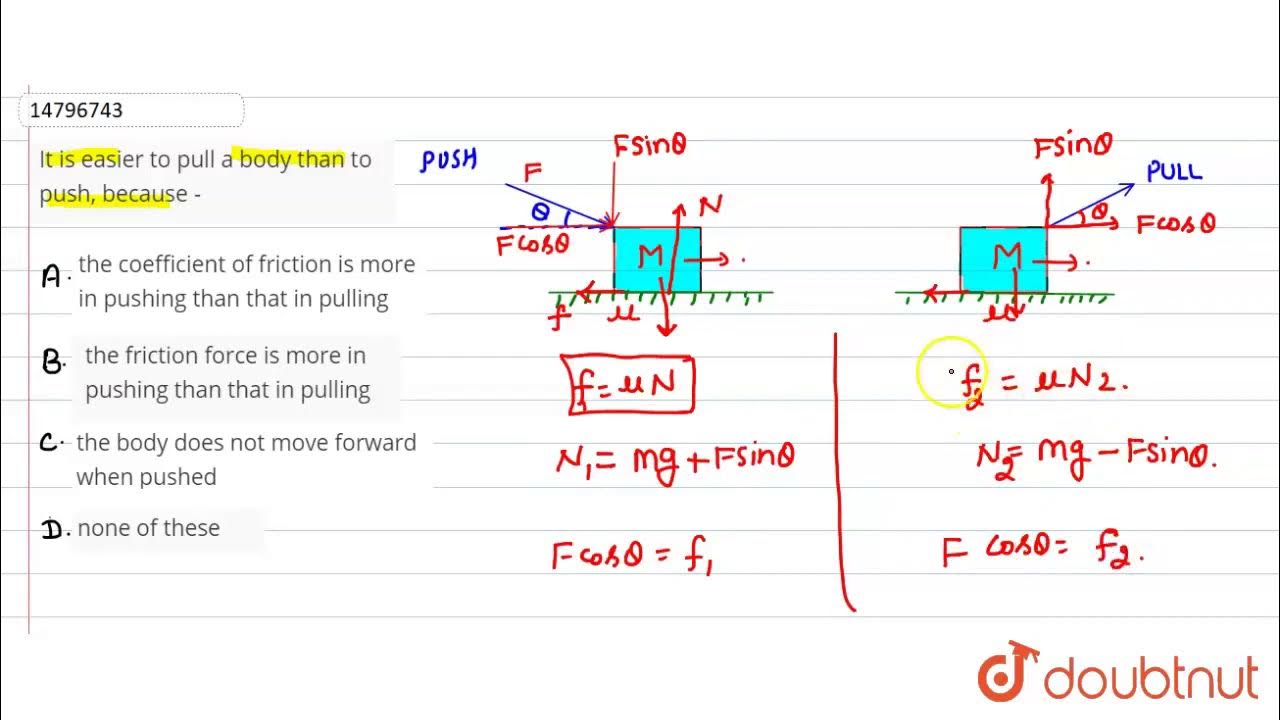 14796743
It is easier to pull a body than to
push, because -
A. the coefficient of friction is more
in pushing than that in pulling
B. the friction force is more in
pushing than that in pulling
C. the body does not move forward
when pushed
D. none of these
PUSH
F
Fsinθ
θ
Fcosθ
N
M
f
μ
f₁ = μN
N₁ = mg + Fsinθ
Fcosθ = f₁
Fsinθ
PULL
θ
Fcosθ
M
μ
f₂ = μN₂.
N₂ = mg - Fsinθ.
F cosθ = f₂.
doubtnut